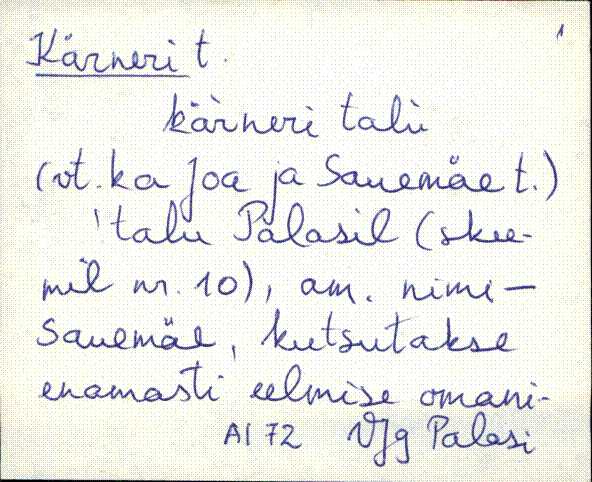 1
Kärneri t.
kä̀rneri talù
(vt. ka Joa ja Sauemäe t.)
'talu Palasil (skee-
mil nr. 10), am. nimi –
Sauemäe, kutsutakse
enamasti eelmise omani-
AI 72 VJg Palasi